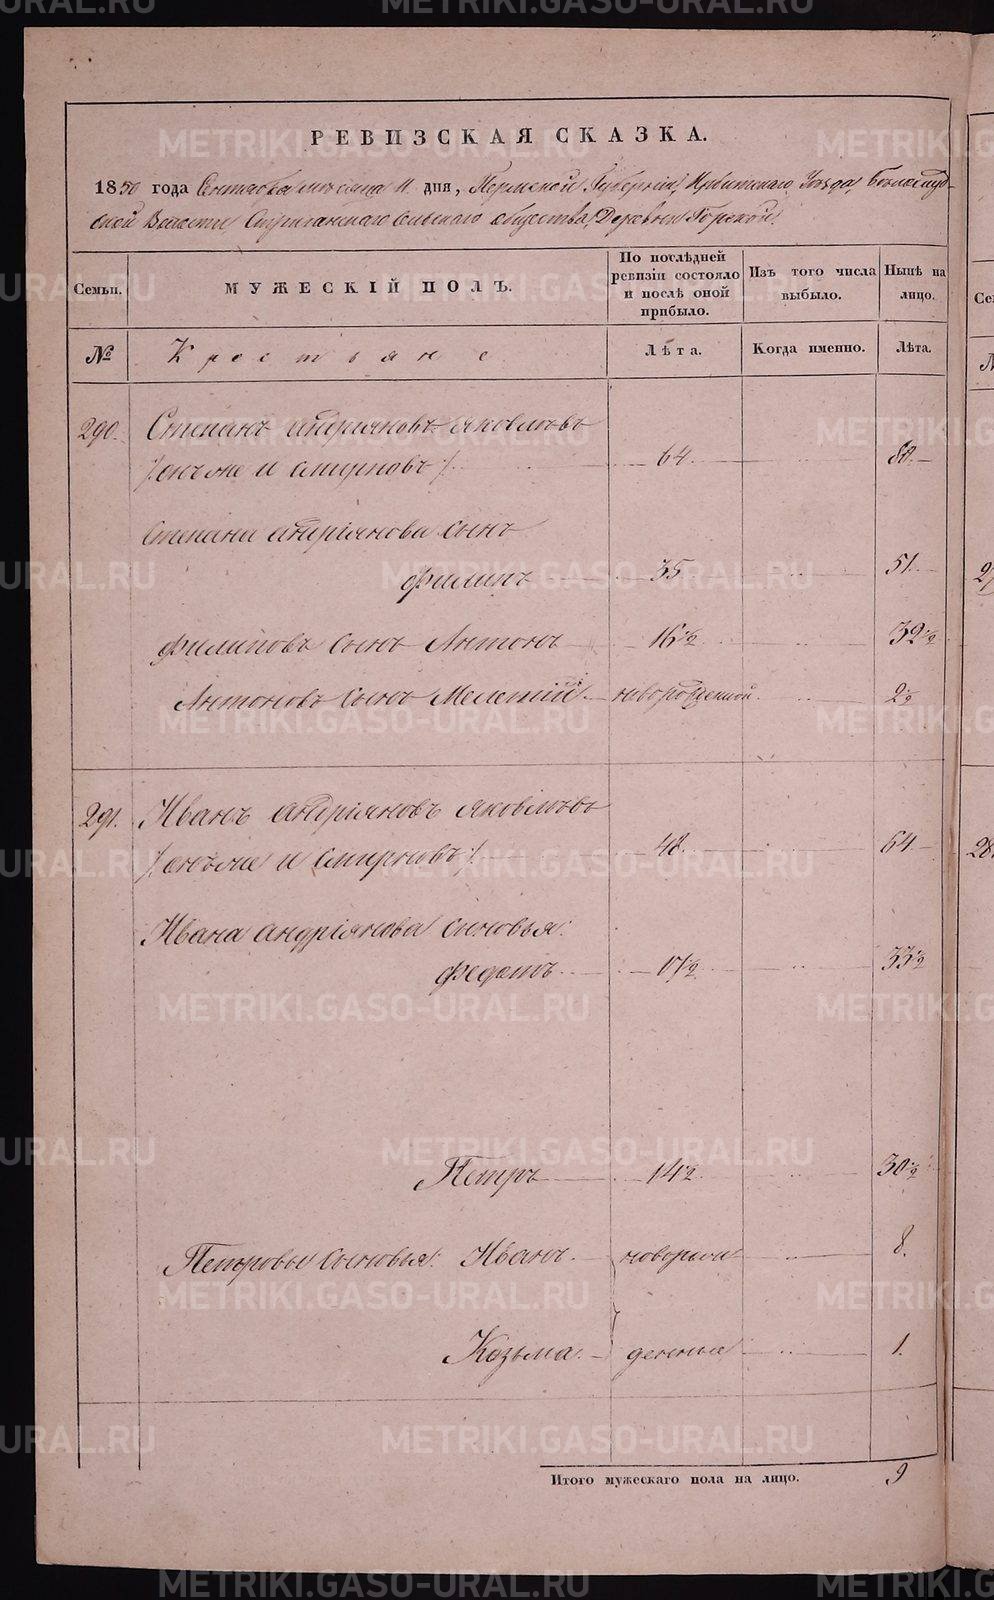 РЕВИЗСКАЯ СКАЗКА.
1850 года Сентября месяца 11 дня, Пермской Губернии, Ирбитскаго Уезда,
ской Волости сельскаго общества, Деревни Горской.
Семьи.
МУЖЕСКІЙ ПОЛЪ.
По послѣдней ревизіи состояло и послѣ оной прибыло.
Изъ того числа выбыло.
Нынѣ на лицо.
№
Крестьяне
Лѣта.
Когда именно.
Лѣта.
290. Степанъ Андріяновъ Яковлевъ
/:онъ же и Смирновъ:/ 64. 80.
Степана Андріянова Сынъ
Филипъ 35 51.
Филиповъ Сынъ Антонъ 16½ 32½
Антоновъ Сынъ Мелетій новорожденной. 2½
291. Иванъ Андріяновъ Яковлевъ
/:онъ же и Смирновъ:/ 48. 64
Ивана Андріянова Сыновья:
Федотъ 17½ 33½
Петръ 14½ 30½
Петровы Сыновья: Иванъ новорож 8.
Козьма денныя 1.
Итого мужескаго пола на лицо. 9
METRIKI.GASO-URAL.RU